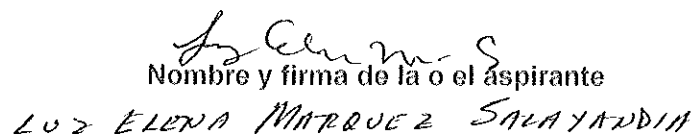 Nombre y firma de la o el aspirante
LUZ ELENA MARQUEZ SALAYANDIA